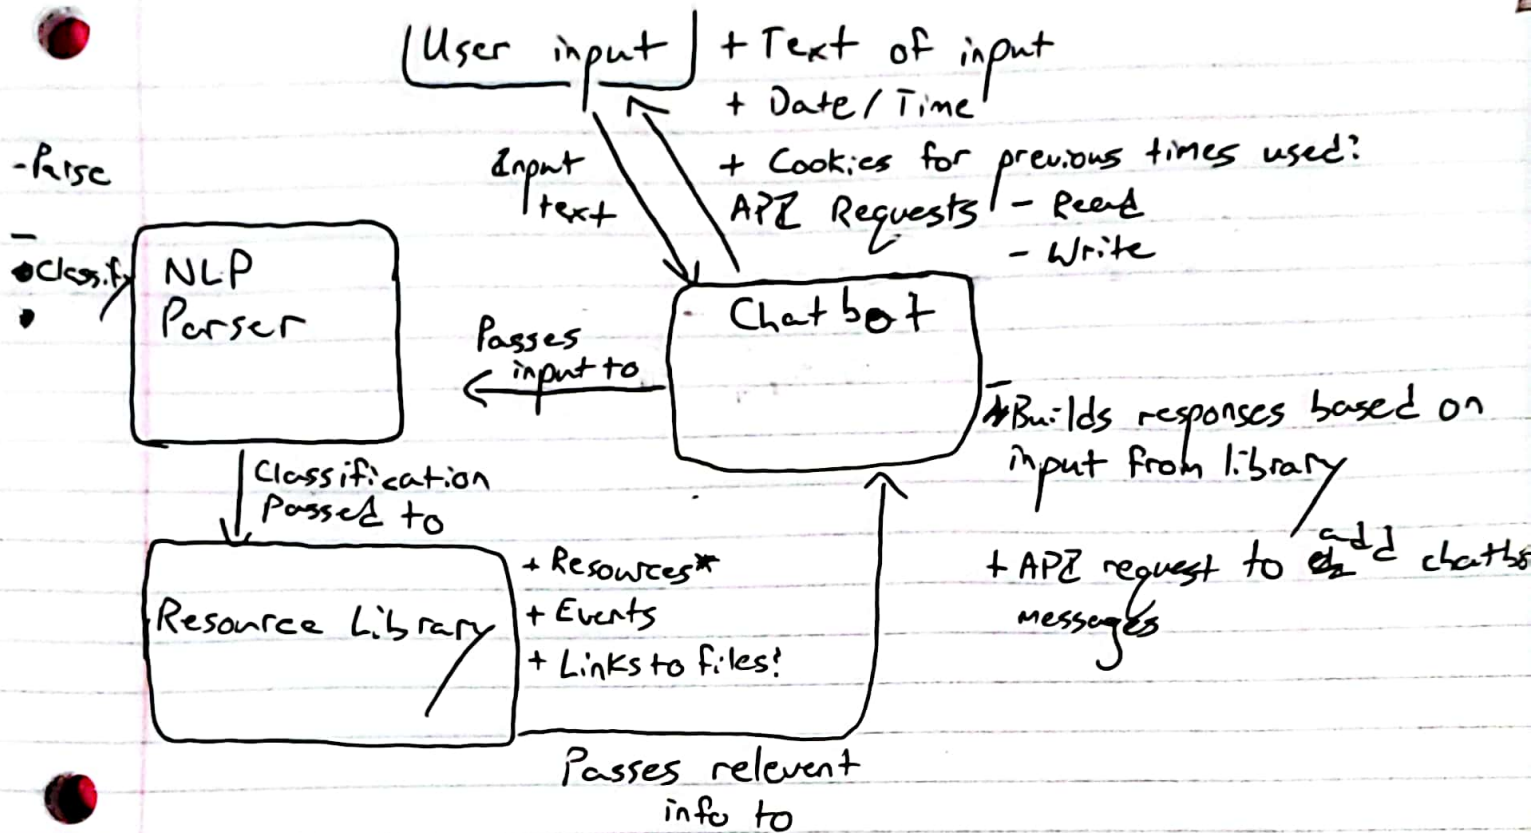 User input
+ Text of input
+ Date/Time
+ Cookies for previous times used?
API Requests - Read
- Write
Input
text
- Parse
-
• Classify
•
NLP
Parser
Chatbot
Passes
input to
Builds responses based on
input from library
+ API request to add
messages
Classification
Passed to
Resource Library
+ Resources*
+ Events
+ Links to files?
Passes relevent
info to